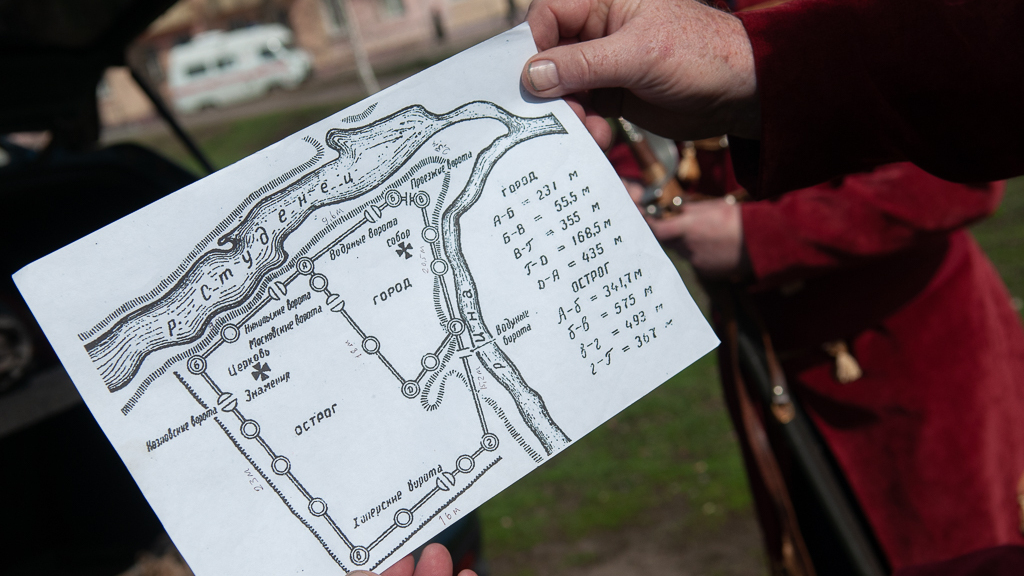 р. Студенец
Проезжие ворота
Водяные ворота
собор
ГОРОД
Никольские ворота
Московские ворота
Церковь
Знамения
Казловские ворота
ОСТРОГ
Водяные
ворота
р. Цна
23м
16м
ГОРОД
А-Б = 231 м
Б-В = 55,5 м
В-Г = 355 м
Г-D = 168,5 м
D-А = 435 м
ОСТРОГ
А-б = 341,7м
б-в = 575 м
в-г = 493 м
г-Г = 367 м